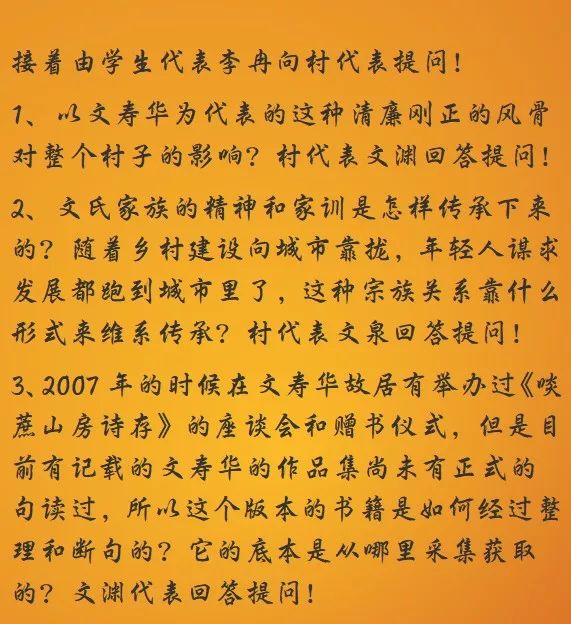 接着由学生代表李冉向村代表提问!
1、以文寿华为代表的这种清廉刚正的风骨
对整个村子的影响?村代表文渊回答提问!
2、文氏家族的精神和家训是怎样传承下来
的?随着乡村建设向城市靠拢,年轻人谋求
发展都跑到城市里了,这种宗族关系靠什么
形式来维系传承?村代表文泉回答提问!
3、2007年的时候在文寿华故居有举办过《啖
蔗山房诗存》的座谈会和赠书仪式,但是目
前有记载的文寿华的作品集尚未有正式的
句读过,所以这个版本的书籍是如何经过整
理和断句的?它的底本是从哪里采集获取
的?文渊代表回答提问!